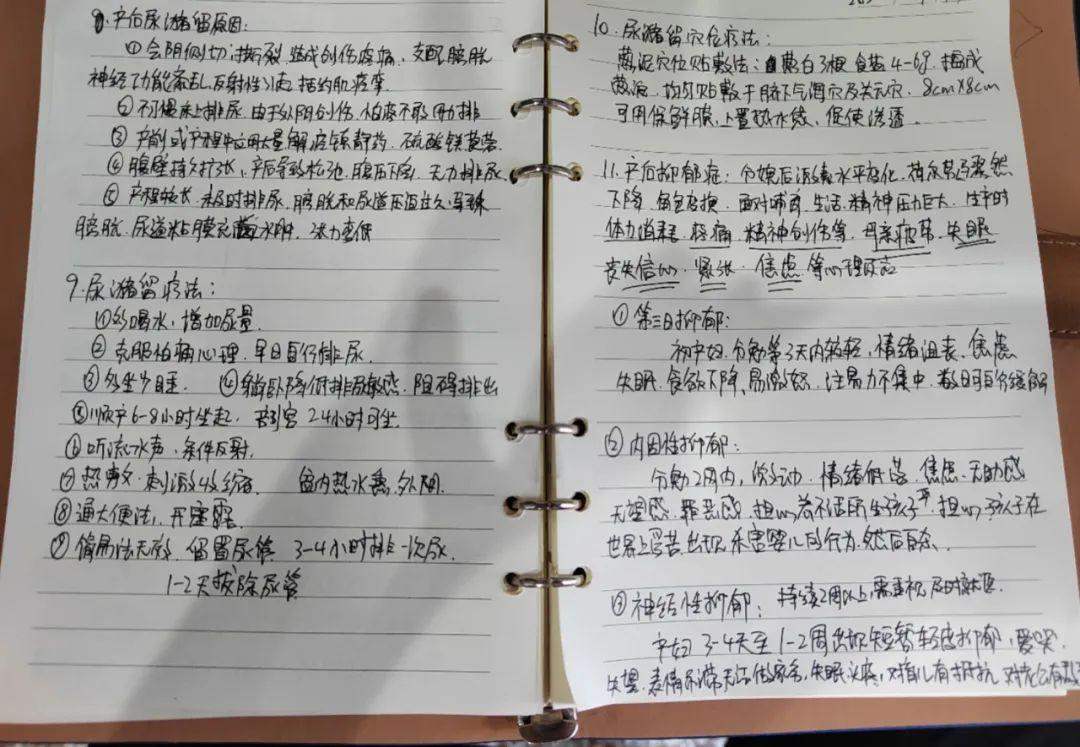 8.产后尿潴留原因:
①会阴侧切,撕裂 造成创伤疼痛,支配膀胱
神经功能紊乱,反射性引起 括约肌痉挛
②不习惯床上排尿.由于外阴创伤,怕疼不敢用力排
③产前或产程中应用大量解痉镇静药.硫酸镁莨菪
④腹壁持久扩张,产后导致松弛.腹压下降,无力排尿
⑤产程较长.未及时排尿.膀胱和尿道压迫过久,导致
膀胱.尿道粘膜充血水肿.张力变低
9.尿潴留疗法:
①多喝水,增加尿量.
②克服怕痛心理.早日自行排尿.
③多坐少睡. ④躺卧降低排尿敏感.阻碍排出
⑤顺产6-8小时坐起. 剖宫 24小时可坐.
⑥听流水声.条件反射.
⑦热敷.刺激收缩. 盆内热水熏.外阴.
⑧通大便法,开塞露.
⑨偏用法无效.留置尿管 3-4小时排一次尿.
1-2天拔除尿管
10.尿潴留穴位疗法:
葱泥穴位贴敷法:葱白3根 食盐4-6g.捣成
葱泥.均匀贴敷于脐下 及关元穴.8cm×8cm
可用保鲜膜.上置热水袋.促使渗透.
11.产后抑郁症:分娩后激素水平变化.荷尔蒙骤然
下降.角色变换.面对哺育.生活.精神压力巨大.生产时
体力消耗.疼痛.精神创伤等.母亲疲劳.失眠
丧失信心.紧张.焦虑.等心理反应
①第三日抑郁:
初产妇.分娩第3天内较轻,情绪沮丧.焦虑
失眠.食欲下降.易激怒.注意力不集中.数日可自行缓解
②内因性抑郁:
分娩2周内,激动.情绪低落.焦虑.无助感
无望感.罪恶感.担心养不活所生孩子.担心孩子在
世界上受苦.出现杀害婴儿的行为.然后自杀.
③神经性抑郁:持续2周以上,需重视.及时就医.
产妇3-4天至1-2周出现短暂轻度抑郁,爱哭.
失望.表情 无法做家务,失眠头疼,对婴儿有抵抗.对老公有